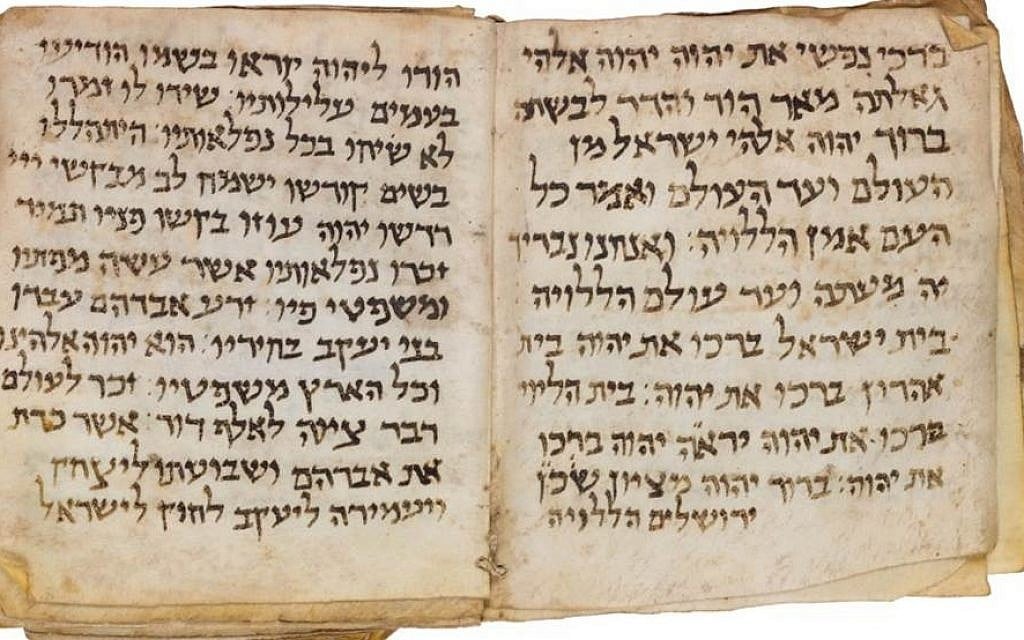 ברכי נפשי את יהוה יהוה אלהי
מאד הוד והדר לבשתה
ברוך יהוה אלהי ישראל מן
העולם ועד העולם ואמר כל
העם אמן הללויה: ואנחנו נבריך
יה מעתה ועד עולם הללויה
בית ישראל ברכו את יהוה בית
אהרון ברכו את יהוה: בית הליוי
ברכו את יהוה יהוה ברכו
את יהוה: ברוך יהוה מציון שכן
ירושלים הללויה
הודו ליהוה קראו בשמו הודיעו
בעמים עלילותיו: שירו לו זמרו
לא שיחו בכל נפלאותיו: היתהללו
בשים קודשו ישמח לב מבקשי ייי
דרשו יהוה עוזו בקשו פניו תמיד
זכרו נפלאותיו אשר עשה מפתיו
ומשפטי פיו: זרע אברהם עבדו
בני יעקב בחיריו: הוא יהוה אלהינו
וכל הארץ משפטיו: זכר לעולם
דבר ציוה לאלף דור: אשר כרת
את אברהם ושבועתו ליצחק
ויעמידה ליעקב לחוק לישראל